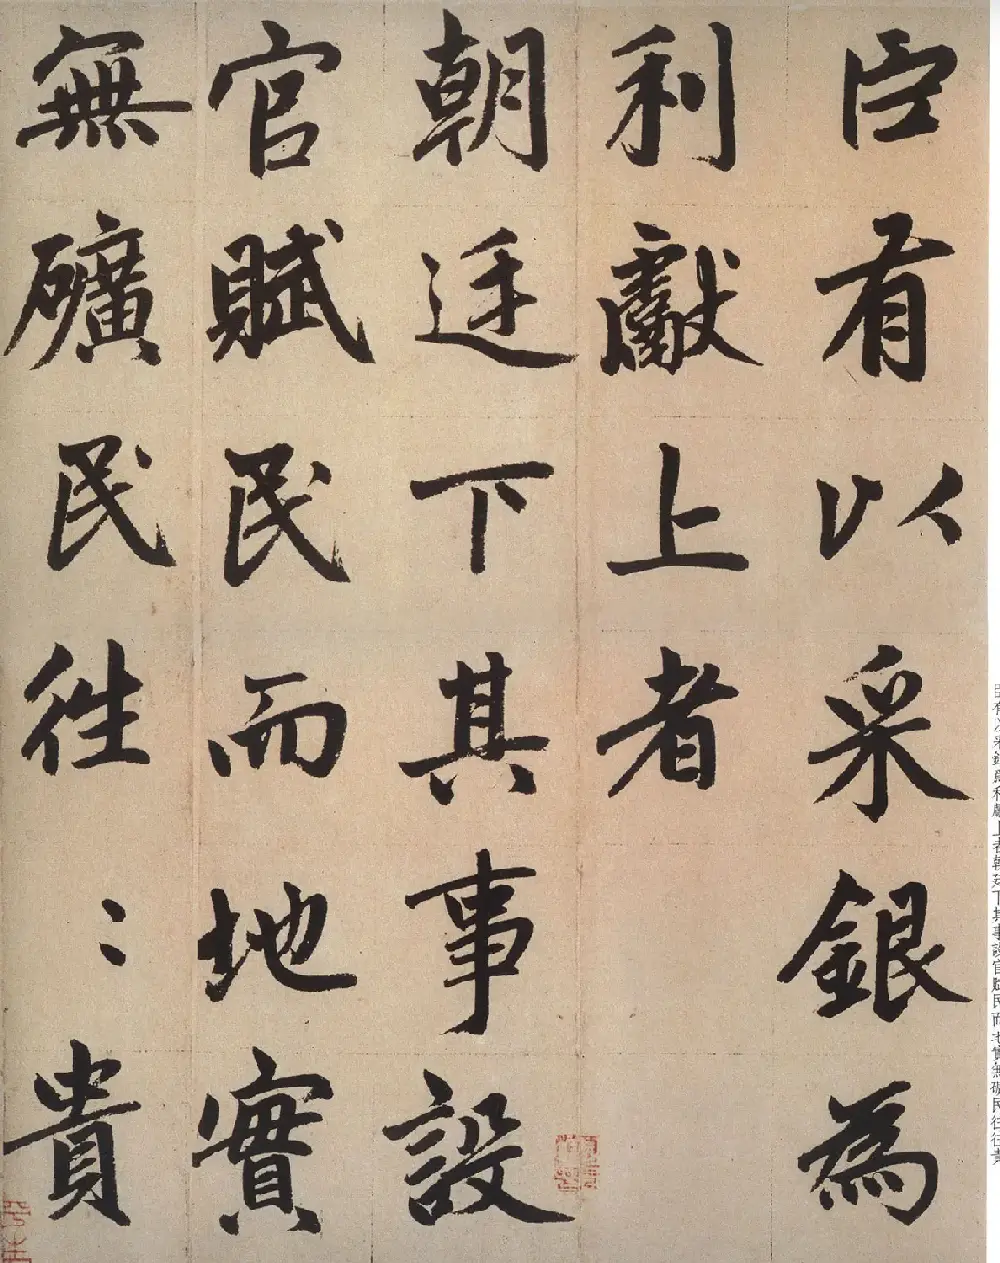 臣有以采銀為
利獻上者
朝廷下其事設
官賦民而地實
無礦民往〻貴
臣有以采銀為利獻上者朝廷下其事設官賦民而地實無礦民往往貴